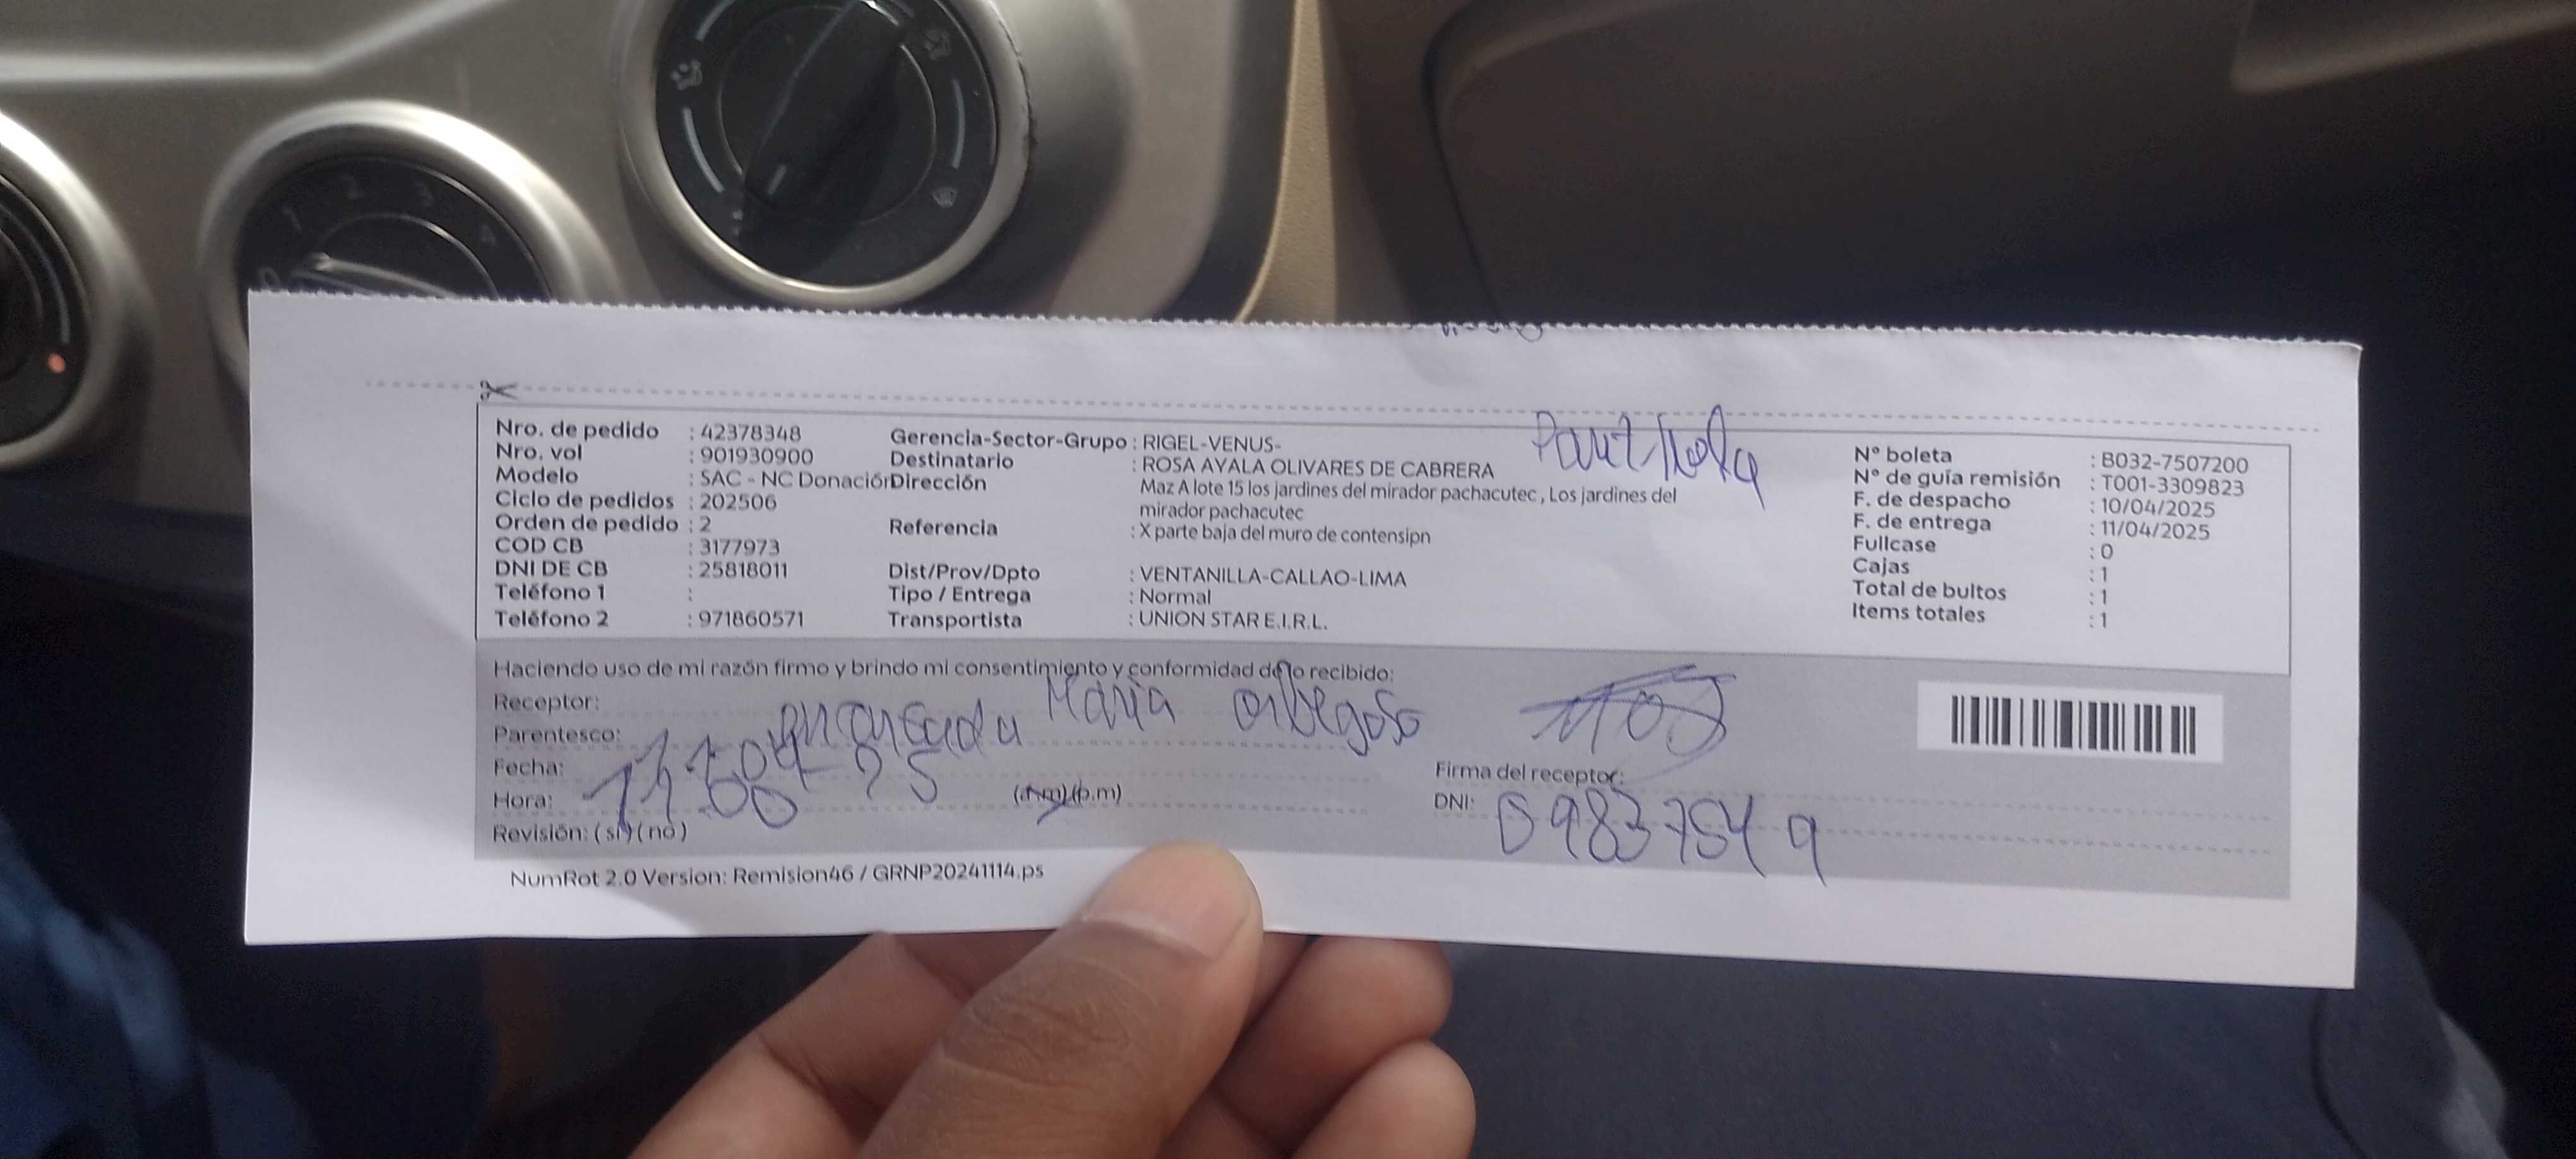 Nro. de pedido : 42378348
Nro. vol : 901930900
Modelo : SAC - NC Donación
Ciclo de pedidos : 202506
Orden de pedido : 2
COD CB : 3177973
DNI DE CB : 25818011
Teléfono 1 :
Teléfono 2 : 971860571
Gerencia-Sector-Grupo : RIGEL-VENUS-
Destinatario : ROSA AYALA OLIVARES DE CABRERA
Dirección Maz A lote 15 los jardines del mirador pachacutec , Los jardines del
mirador pachacutec
Referencia : X parte baja del muro de contensipn
Dist/Prov/Dpto : VENTANILLA-CALLAO-LIMA
Tipo / Entrega : Normal
Transportista : UNION STAR E.I.R.L.
N° boleta : B032-7507200
N° de guía remisión : T001-3309823
F. de despacho : 10/04/2025
F. de entrega : 11/04/2025
Fullcase : 0
Cajas : 1
Total de bultos : 1
Items totales : 1
Haciendo uso de mi razón firmo y brindo mi consentimiento y conformidad de lo recibido:
Receptor: Maria orbegoso
Parentesco: encargada
Fecha: 11 04 25
Hora: 11:00 (a.m)(p.m)
Revisión: ( si ) ( no )
Firma del receptor:
DNI: 09837549
NumRot 2.0 Version: Remision46 / GRNP20241114.ps